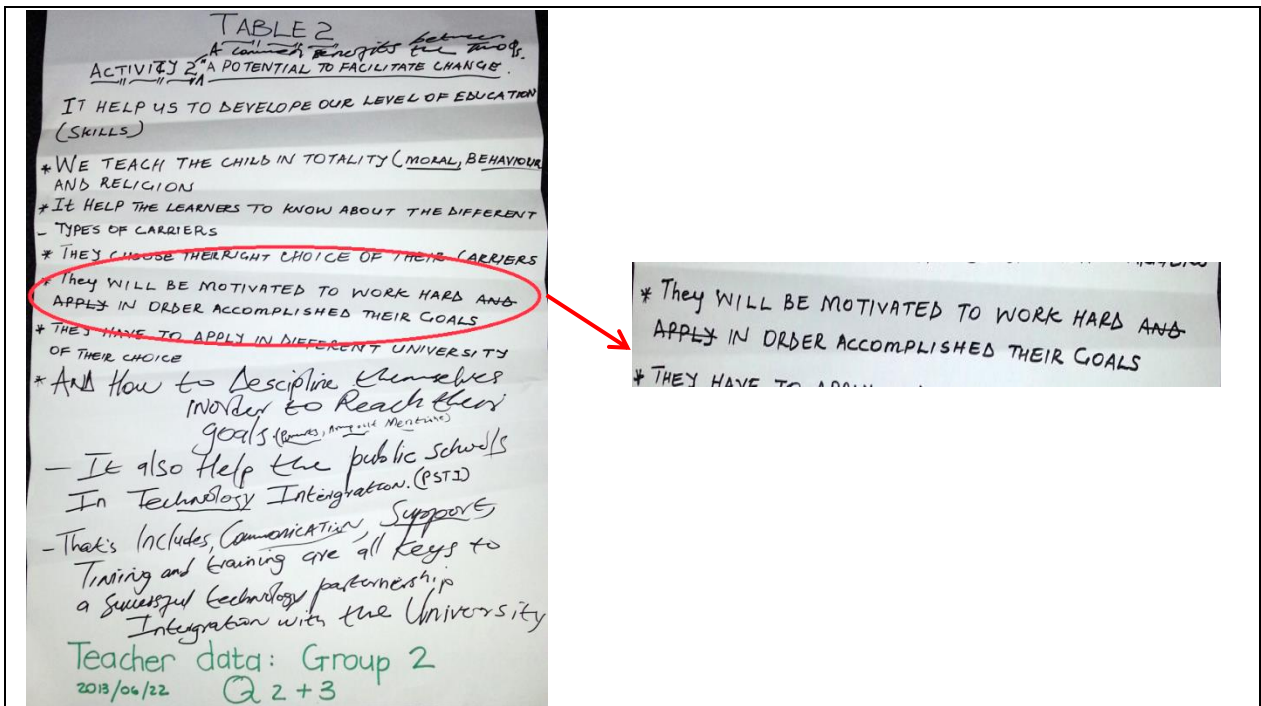 TABLE 2
A common benefits between the two
ACTIVITY 2 "A POTENTIAL TO FACILITATE CHANGE.
IT HELP US TO DEVELOPE OUR LEVEL OF EDUCATION
(SKILLS)
* WE TEACH THE CHILD IN TOTALITY (MORAL, BEHAVIOUR
AND RELIGION
* It HELP THE LEARNERS TO KNOW ABOUT THE DIFFERENT
- TYPES OF CARRIERS
* THEY CHOOSE THEIR RIGHT CHOICE OF THEIR CARRIERS
* They WILL BE MOTIVATED TO WORK HARD AND
APPLY IN ORDER ACCOMPLISHED THEIR GOALS
* THEY HAVE TO APPLY IN DIFFERENT UNIVERSITY
OF THEIR CHOICE
* AND How to Descipline themselves
inorder to Reach their
goals
- It also Help the public schools
In Technology Intergration. (PSTI)
- That's Includes, Communication, Support,
Timing and training are all keys to
a successful technology parternership
Intergration with the University
Teacher data: Group 2
2013/06/22 Q 2 + 3
* They WILL BE MOTIVATED TO WORK HARD AND
APPLY IN ORDER ACCOMPLISHED THEIR GOALS
* THEY HAVE TO APPLY